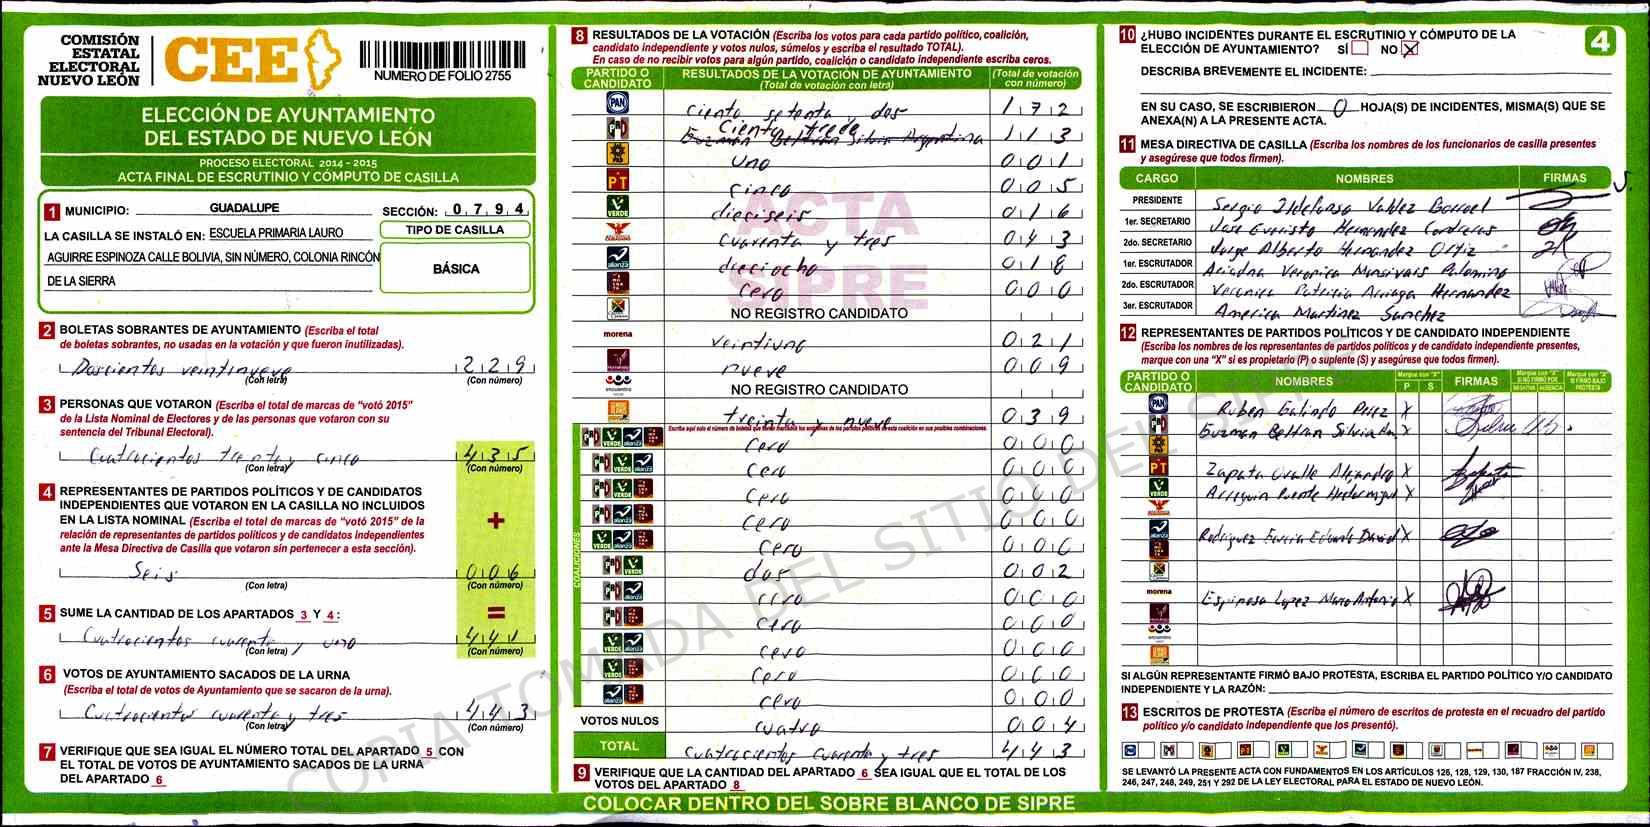 COMISIÓN
ESTATAL
ELECTORAL
NUEVO LEÓN
CEE
NUMERO DE FOLIO 2755
ELECCIÓN DE AYUNTAMIENTO
DEL ESTADO DE NUEVO LEÓN
PROCESO ELECTORAL 2014 - 2015
ACTA FINAL DE ESCRUTINIO Y CÓMPUTO DE CASILLA
1 MUNICIPIO: GUADALUPE SECCIÓN: 0 7 9 4
LA CASILLA SE INSTALÓ EN: ESCUELA PRIMARIA LAURO
AGUIRRE ESPINOZA CALLE BOLIVIA, SIN NÚMERO, COLONIA RINCÓN
DE LA SIERRA
TIPO DE CASILLA
BÁSICA
2 BOLETAS SOBRANTES DE AYUNTAMIENTO (Escriba el total
de boletas sobrantes, no usadas en la votación y que fueron inutilizadas).
Doscientos veintinueve 2 2 9
(Con letra) (Con número)
3 PERSONAS QUE VOTARON (Escriba el total de marcas de “votó 2015”
de la Lista Nominal de Electores y de las personas que votaron con su
sentencia del Tribunal Electoral).
Cuatrocientos treinta y cinco 4 3 5
(Con letra) (Con número)
4 REPRESENTANTES DE PARTIDOS POLÍTICOS Y DE CANDIDATOS
INDEPENDIENTES QUE VOTARON EN LA CASILLA NO INCLUIDOS
EN LA LISTA NOMINAL (Escriba el total de marcas de “votó 2015” de la
relación de representantes de partidos políticos y de candidatos independientes
ante la Mesa Directiva de Casilla que votaron sin pertenecer a esta sección).
+
Seis 0 0 6
(Con letra) (Con número)
5 SUME LA CANTIDAD DE LOS APARTADOS 3 Y 4:
=
Cuatrocientos cuarenta y uno 4 4 1
(Con letra) (Con número)
6 VOTOS DE AYUNTAMIENTO SACADOS DE LA URNA
(Escriba el total de votos de Ayuntamiento que se sacaron de la urna).
Cuatrocientos cuarenta y tres 4 4 3
(Con letra) (Con número)
7 VERIFIQUE QUE SEA IGUAL EL NÚMERO TOTAL DEL APARTADO 5 CON
EL TOTAL DE VOTOS DE AYUNTAMIENTO SACADOS DE LA URNA
DEL APARTADO 6
8 RESULTADOS DE LA VOTACIÓN (Escriba los votos para cada partido político, coalición,
candidato independiente y votos nulos, súmelos y escriba el resultado TOTAL).
En caso de no recibir votos para algún partido, coalición o candidato independiente escriba ceros.
PARTIDO O CANDIDATO
RESULTADOS DE LA VOTACIÓN DE AYUNTAMIENTO
(Total de votación con letra)
(Total de votación con número)
PAN ciento setenta dos 1 7 2
PRD Ciento trece 1 1 3
Guzmán Beltrán Silvia Argentina
uno 0 0 1
PT cinco 0 0 5
VERDE dieciseis 0 1 6
cuarenta y tres 0 4 3
alianza dieciocho 0 1 8
cero 0 0 0
NO REGISTRO CANDIDATO
morena veintiuno 0 2 1
nueve 0 0 9
encuentro NO REGISTRO CANDIDATO
treinta y nueve 0 3 9
COALICIONES
cero 0 0 0
cero 0 0 0
cero 0 0 0
cero 0 0 0
cero 0 0 0
dos 0 0 2
cero 0 0 0
cero 0 0 0
cero 0 0 0
cero 0 0 0
cero 0 0 0
VOTOS NULOS cuatro 0 0 4
TOTAL cuatrocientos cuarenta y tres 4 4 3
9 VERIFIQUE QUE LA CANTIDAD DEL APARTADO 6 SEA IGUAL QUE EL TOTAL DE LOS
VOTOS DEL APARTADO 8
ACTA
SIPRE
COPIA TOMADA DEL SITIO DEL SIPRE
COLOCAR DENTRO DEL SOBRE BLANCO DE SIPRE
4
10 ¿HUBO INCIDENTES DURANTE EL ESCRUTINIO Y CÓMPUTO DE LA
ELECCIÓN DE AYUNTAMIENTO? SÍ NO X
DESCRIBA BREVEMENTE EL INCIDENTE:
EN SU CASO, SE ESCRIBIERON 0 HOJA(S) DE INCIDENTES, MISMA(S) QUE SE
ANEXA(N) A LA PRESENTE ACTA.
11 MESA DIRECTIVA DE CASILLA (Escriba los nombres de los funcionarios de casilla presentes
y asegúrese que todos firmen).
CARGO NOMBRES FIRMAS
PRESIDENTE Sergio Ildefonso Valdez
1er. SECRETARIO Jose Evaristo Hernandez Contreras
2do. SECRETARIO Jorge Alberto Hernandez Ortiz
1er. ESCRUTADOR Ariadna Veronica Monsivais Palomino
2do. ESCRUTADOR Veronica Patricia Arriaga Hernandez
3er. ESCRUTADOR America Martinez Sanchez
12 REPRESENTANTES DE PARTIDOS POLÍTICOS Y DE CANDIDATO INDEPENDIENTE
(Escriba los nombres de los representantes de partidos políticos y de candidato independiente presentes,
marque con una “X” si es propietario (P) o suplente (S) y asegúrese que todos firmen).
PARTIDO O CANDIDATO NOMBRES Marque con “X” P S FIRMAS
PAN Ruben Galindo Perez X
Guzman Beltran Silvia X
PT Zapata Ovalle Alejandro X
VERDE Arreguin Puente X
Rodriguez Garcia Eduardo David X
morena Espinosa Lopez Marco Antonio X
SI ALGÚN REPRESENTANTE FIRMÓ BAJO PROTESTA, ESCRIBA EL PARTIDO POLÍTICO Y/O CANDIDATO
INDEPENDIENTE Y LA RAZÓN:
13 ESCRITOS DE PROTESTA (Escriba el número de escritos de protesta en el recuadro del partido
político y/o candidato independiente que los presentó).
SE LEVANTÓ LA PRESENTE ACTA CON FUNDAMENTOS EN LOS ARTÍCULOS 126, 128, 129, 130, 187 FRACCIÓN IV, 238,
246, 247, 248, 249, 251 Y 292 DE LA LEY ELECTORAL PARA EL ESTADO DE NUEVO LEÓN.